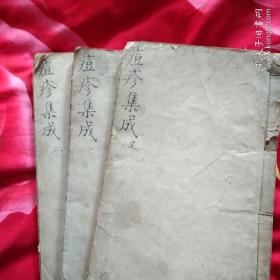 痘疹集成
痘疹集成
痘疹集成
孔夫子旧书网